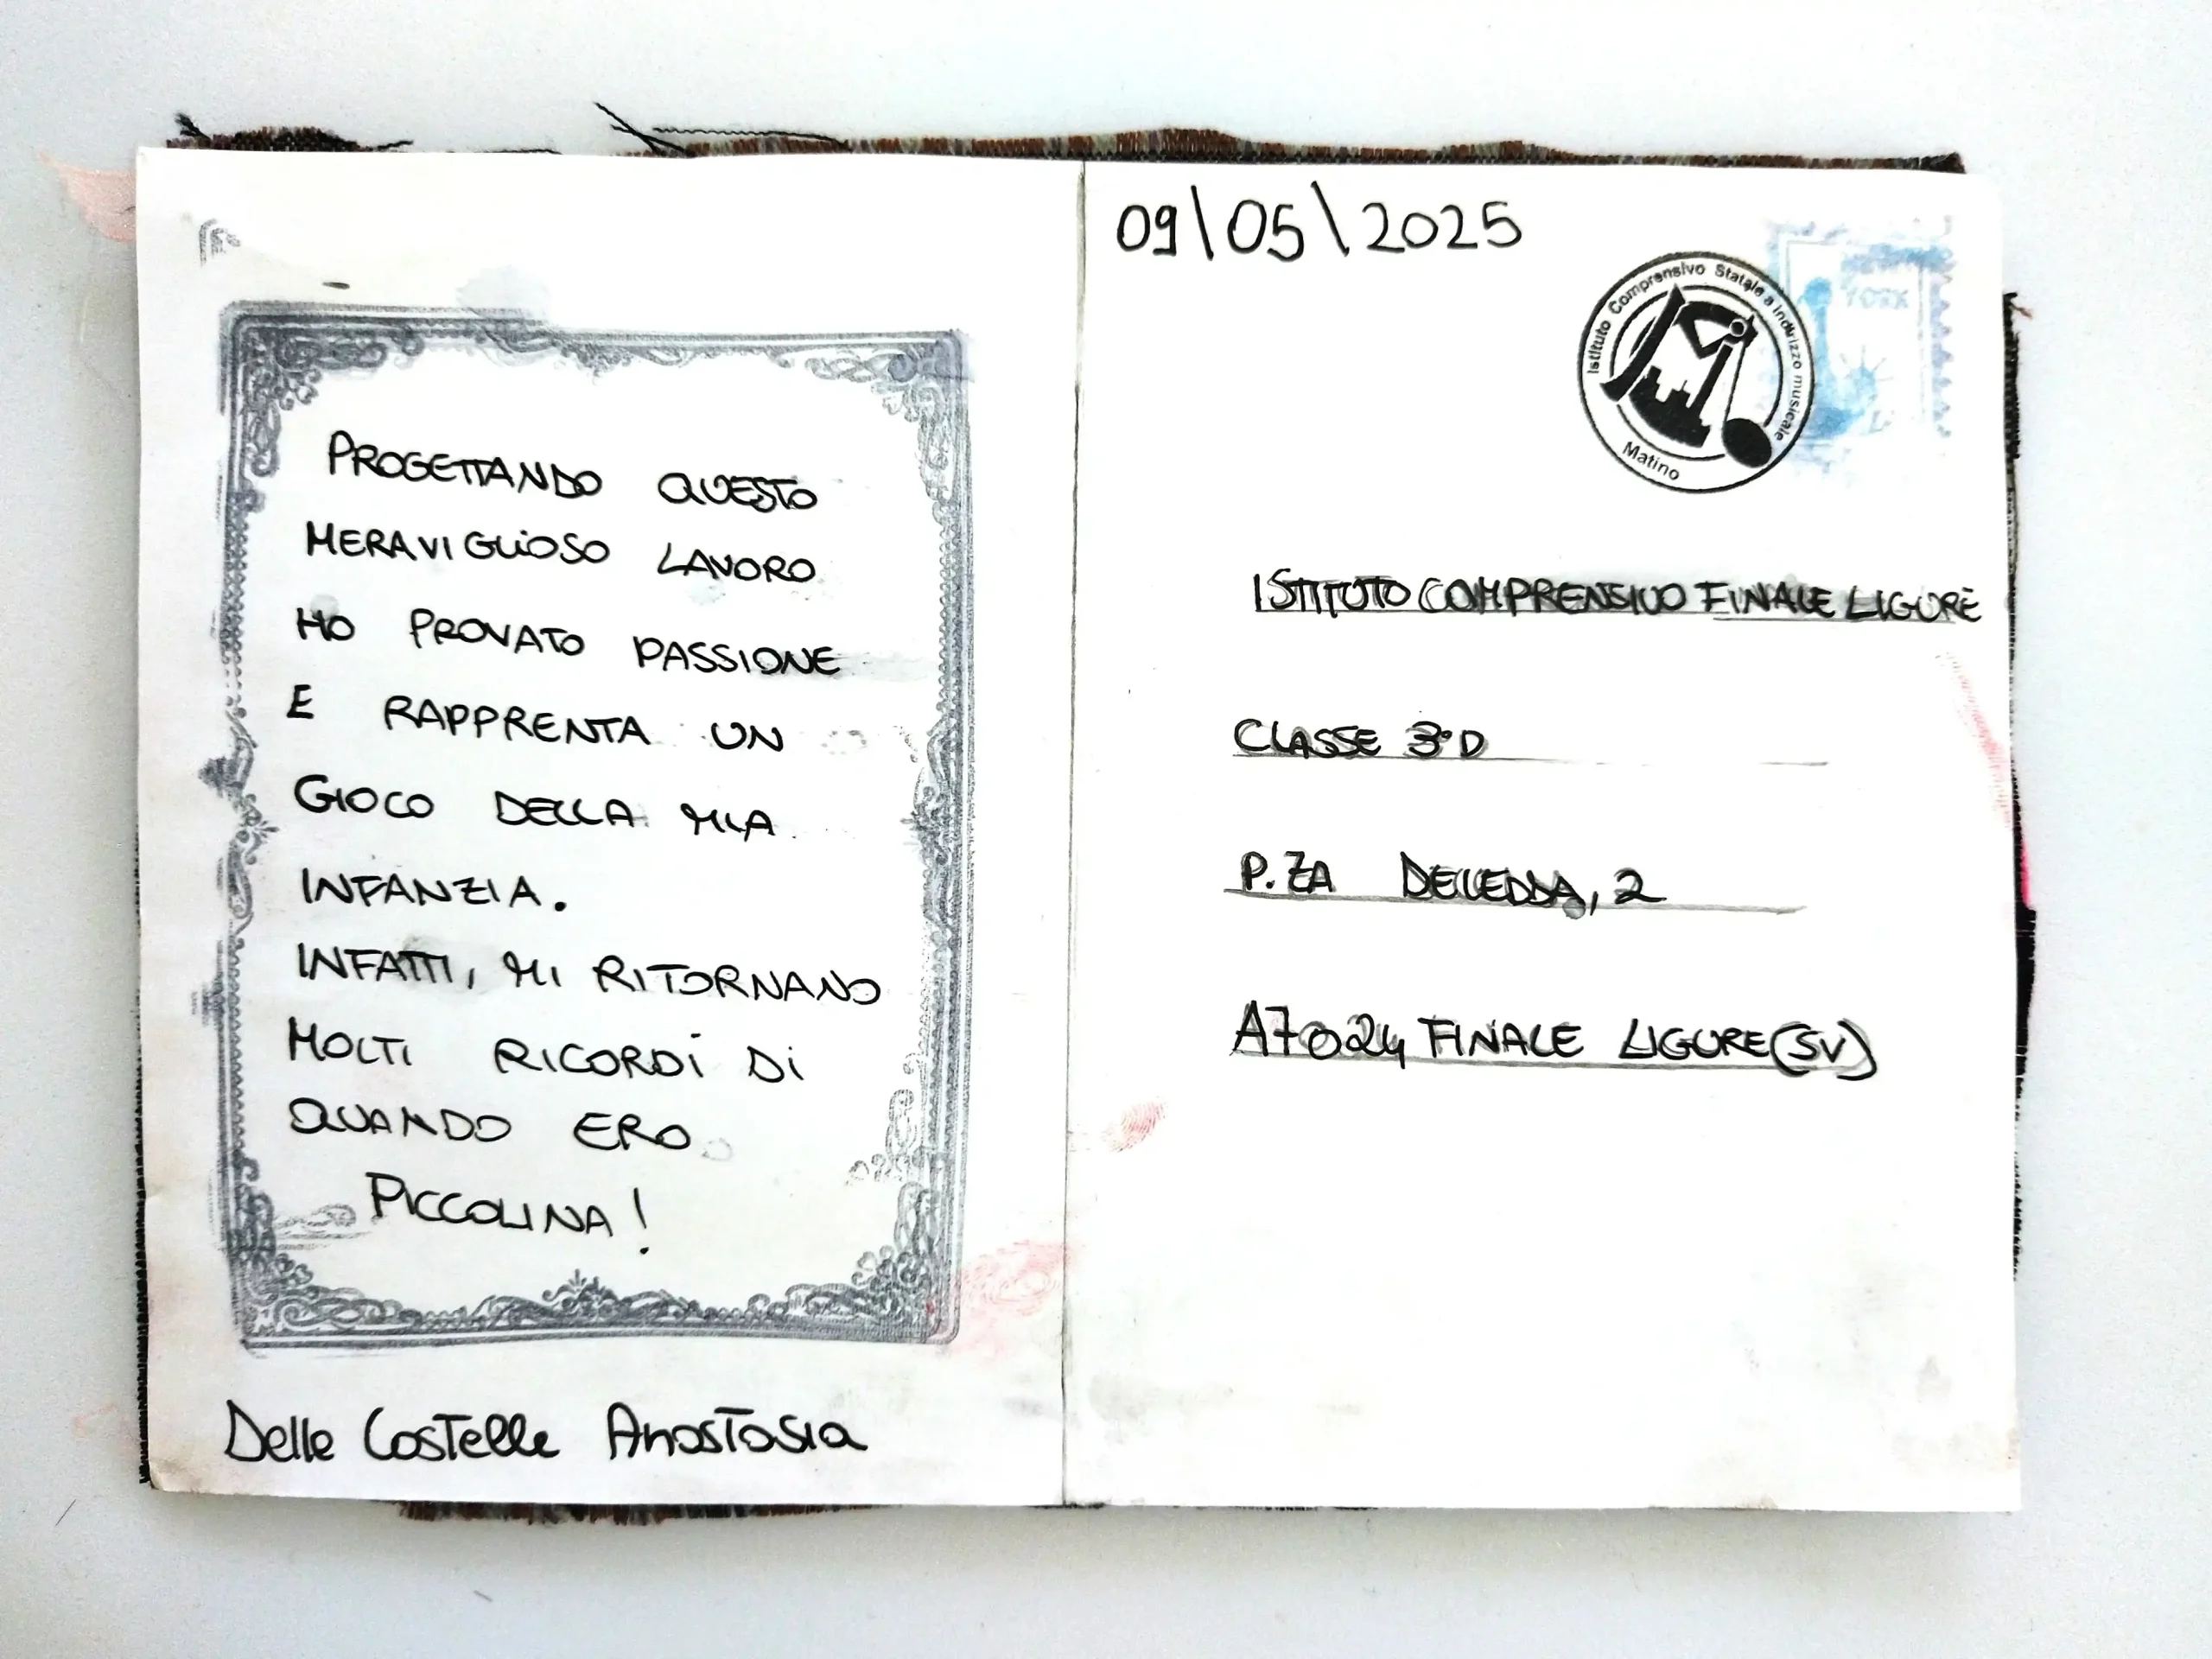 PROGETTANDO QUESTO
MERAVIGLIOSO LAVORO
HO PROVATO PASSIONE
E RAPPRENTA UN
GIOCO DELLA MIA
INFANZIA.
INFATTI, MI RITORNANO
MOLTI RICORDI DI
QUANDO ERO
PICCOLINA!
Delle Costelle Anastasia
09\05\2025
Istituto Comprensivo Statale a indirizzo musicale
Matino
YORK
ISTITUTO COMPRENSIVO FINALE LIGURE
CLASSE 3°D
P.ZA DELEDDA, 2
A7024 FINALE LIGURE (SV)